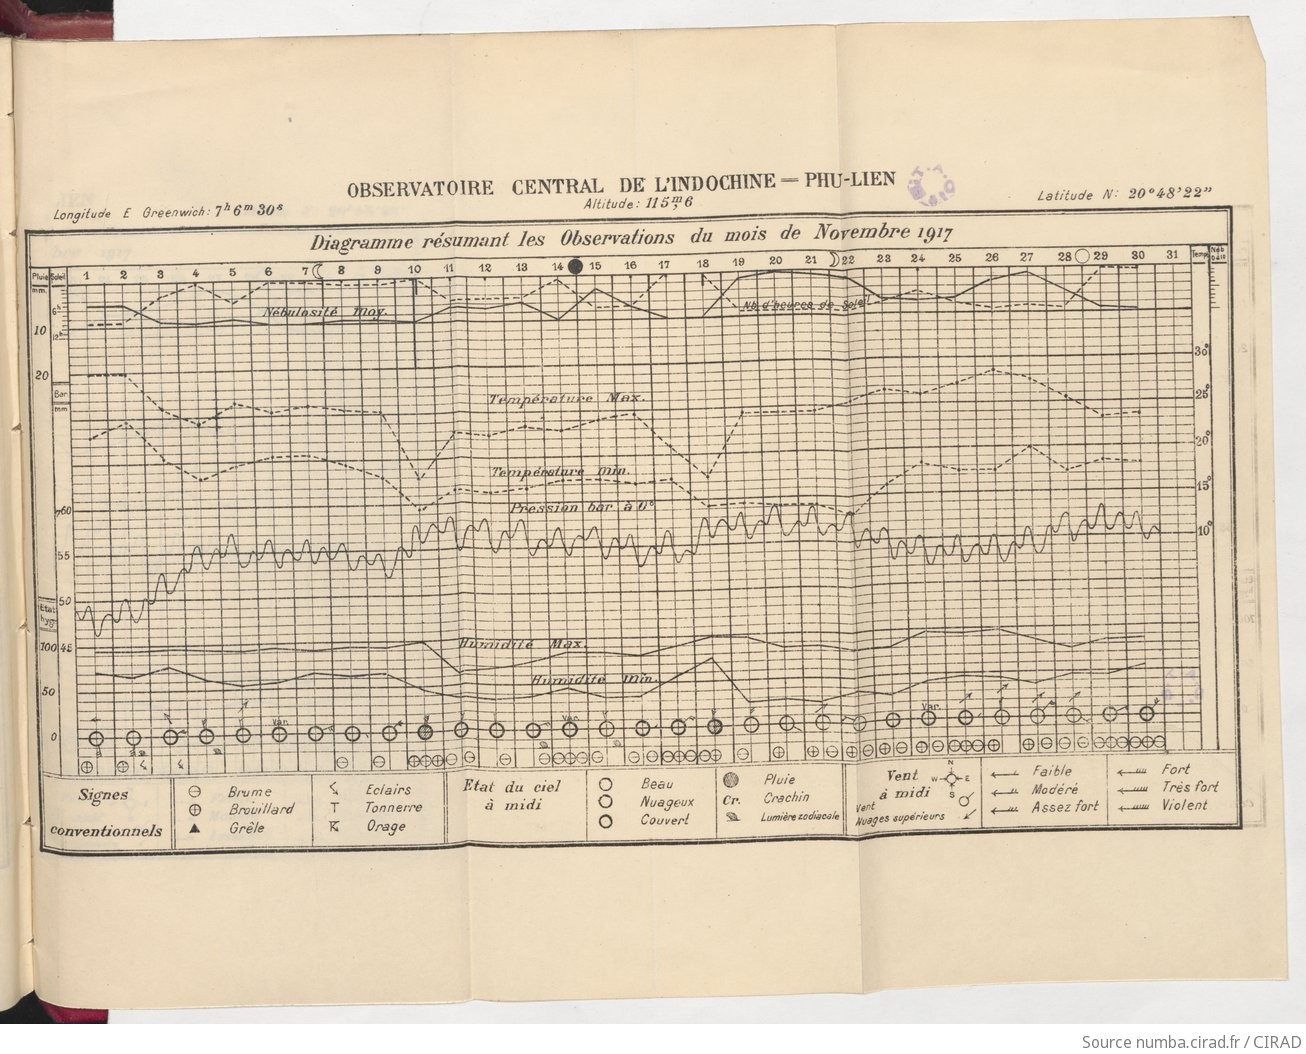 OBSERVATOIRE CENTRAL DE L'INDOCHINE = PHU-LIEN
Longitude E Greenwich: 7h 6m 30s
Altitude: 115m,6
Latitude N: 20°48'22"
Diagramme résumant les Observations du mois de Novembre 1917
Pluie Soleil 1 2 3 4 5 6 7 8 9 10 11 12 13 14 15 16 17 18 19 20 21 22 23 24 25 26 27 28 29 30 31 Temp. Néb
mm.
6h
Nb d'heures de Soleil
Nébulosité moy.
10
12h
30°
20
Bar.
mm
Température Max.
25°
20°
Température min.
15°
Pression bar. à 0°
760
10°
55
50
Etat
hyg.
Humidité Max.
100 745
Humidité Min.
50
Var.
Var.
Var.
0
Signes
conventionnels
Brume
Brouillard
Grêle
Eclairs
Tonnerre
Orage
Etat du ciel
à midi
Beau
Nuageux
Couvert
Pluie
Cr. Crachin
Lumière zodiacale
Vent
à midi
N
W E
S
Vent
Nuages supérieurs
Faible
Modéré
Assez fort
Fort
Très fort
Violent
Source numba.cirad.fr / CIRAD